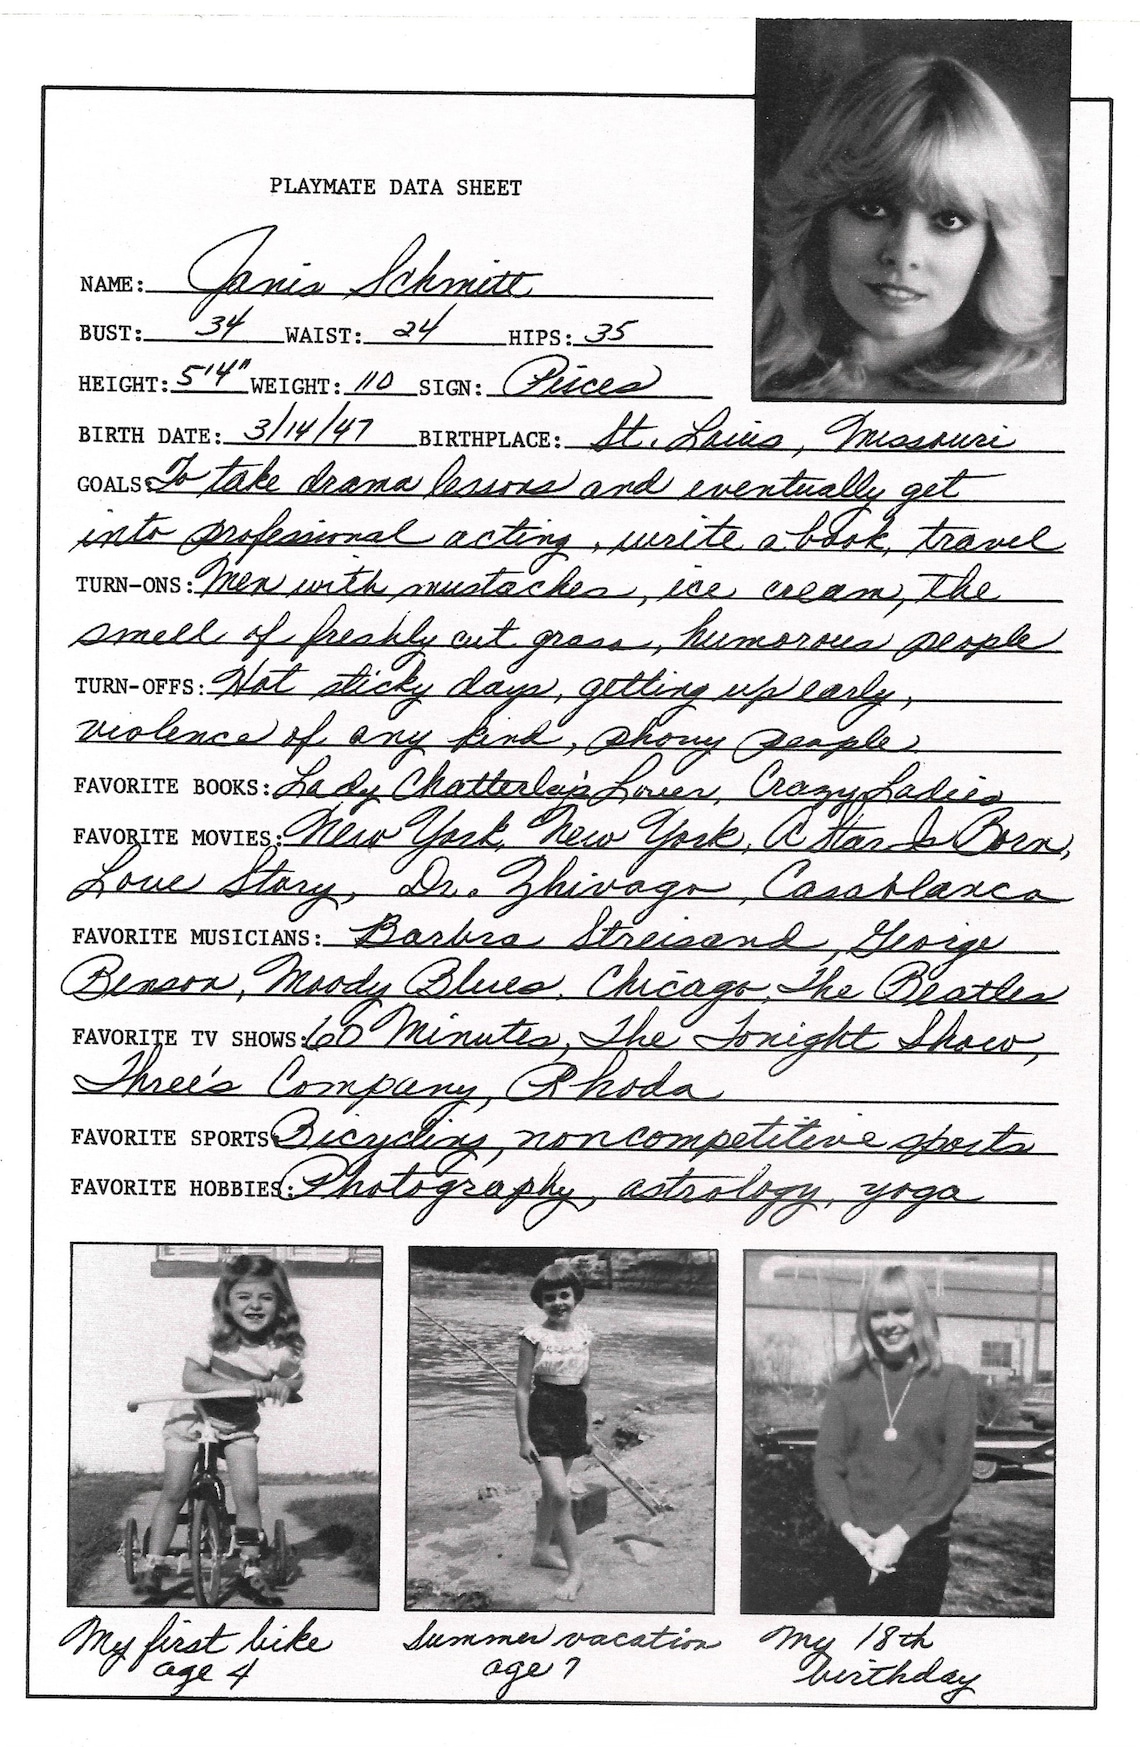 PLAYMATE DATA SHEET
NAME: Janis Schmitt
BUST: 34 WAIST: 24 HIPS: 35
HEIGHT: 5'4" WEIGHT: 110 SIGN: Pisces
BIRTH DATE: 3/14/47 BIRTHPLACE: St. Louis, Missouri
GOALS: To take drama lessons and eventually get
into professional acting, write a book, travel
TURN-ONS: Men with mustaches, ice cream, the
smell of freshly cut grass, humorous people
TURN-OFFS: Hot sticky days, getting up early,
violence of any kind, phony people
FAVORITE BOOKS: Lady Chatterley's Lover, Crazy Ladies
FAVORITE MOVIES: New York, New York, A Star Is Born,
Love Story, Dr. Zhivago, Casablanca
FAVORITE MUSICIANS: Barbra Streisand, George
Benson, Moody Blues, Chicago, The Beatles
FAVORITE TV SHOWS: 60 Minutes, The Tonight Show,
Three's Company, Rhoda
FAVORITE SPORTS: Bicycling, noncompetitive sports
FAVORITE HOBBIES: Photography, astrology, yoga
My first bike
age 4
Summer vacation
age 7
My 18th
birthday